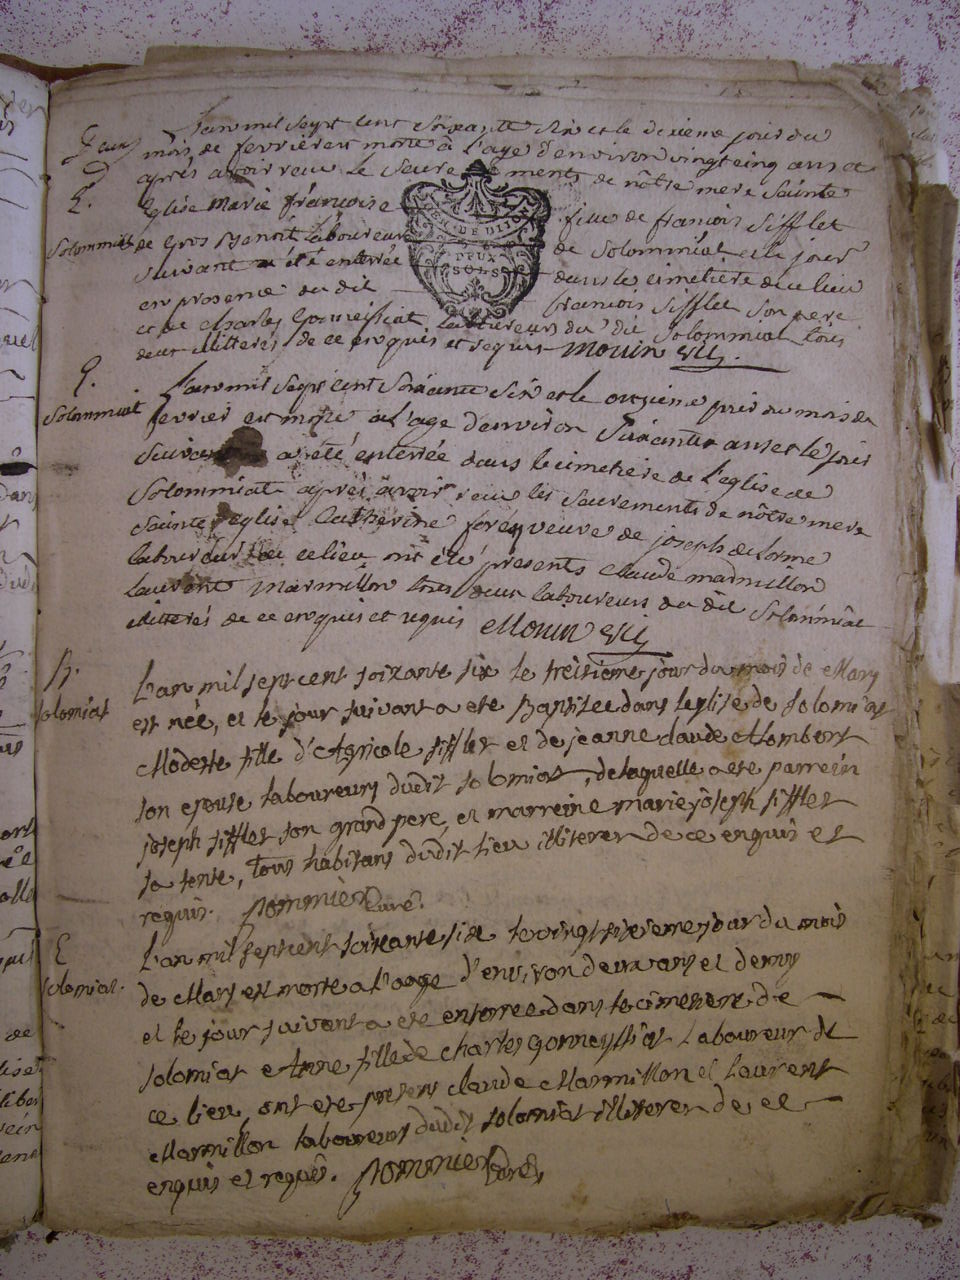 L'an mil sept cent soixante six et le dixieme jour du
mois de fevrier est morte à l'age d'environ vingt cinq ans et
après avoir receu le sacre ments de nôtre mere Sainte
E.
Eglise Marie françoise fille de françois Sifflet
Solommiat
de Gros Benoit laboureur de Solommiat et le jour
suivant a été enterrée dans le cimetiere de ce lieu
en presence du dit françois Sifflet son pere
et de Charles laboureurs du dit Solommiat tous
deux illitteres de ce enquis et requis Mouin vic.
GEN. DE DIJON
DEUX
SOLS
E.
L'an mil sept cent soixante six et le onzieme jour du mois de
Solommiat
fevrier est morte à l'age d'environ soixante ans et le jour
suivant a été enterrée dans le cimetiere de l'eglise de
Solommiat après avoir receu les sacrements de nôtre mere
Sainte eglise Catherine veuve de joseph delorme
laboureur de ce lieu ont été presents claude marmillon
laurent Marmillon tous deux laboureurs du dit Solommiat
illitterés de ce enquis et requis Mouin vic
B.
L'an mil sept cent soixante six le treisieme jour du mois de Mars
solomiat
est née, et le jour suivant a ete Baptisee dans leglise de solomiat
Modeste fille d'Agricole sifflet et de jeanne claude Hombert
son epouse laboureurs dudit solomiat, de laquelle a ete parrein
joseph sifflet son grand pere, et marreine marie joseph sifflet
sa tente, tous habitans dudit lieu illiterer de ce enquis et
requis. pommier Curé.
E
L'an mil sept cent soixante six le vingt sixieme jour du mois
solomiat.
de Mars est morte a l'aage d'environ deux ans et demy
et le jour suivant a ete enterree dans le cimetiere de
solomiat Anne fille de charles gonneyssiat Laboureur de
ce lieu, ont ete presens claude Marmillon et laurent
Marmillon laboureurs dudit solomiat illiterer de ce
enquis et requis. pommier Curé